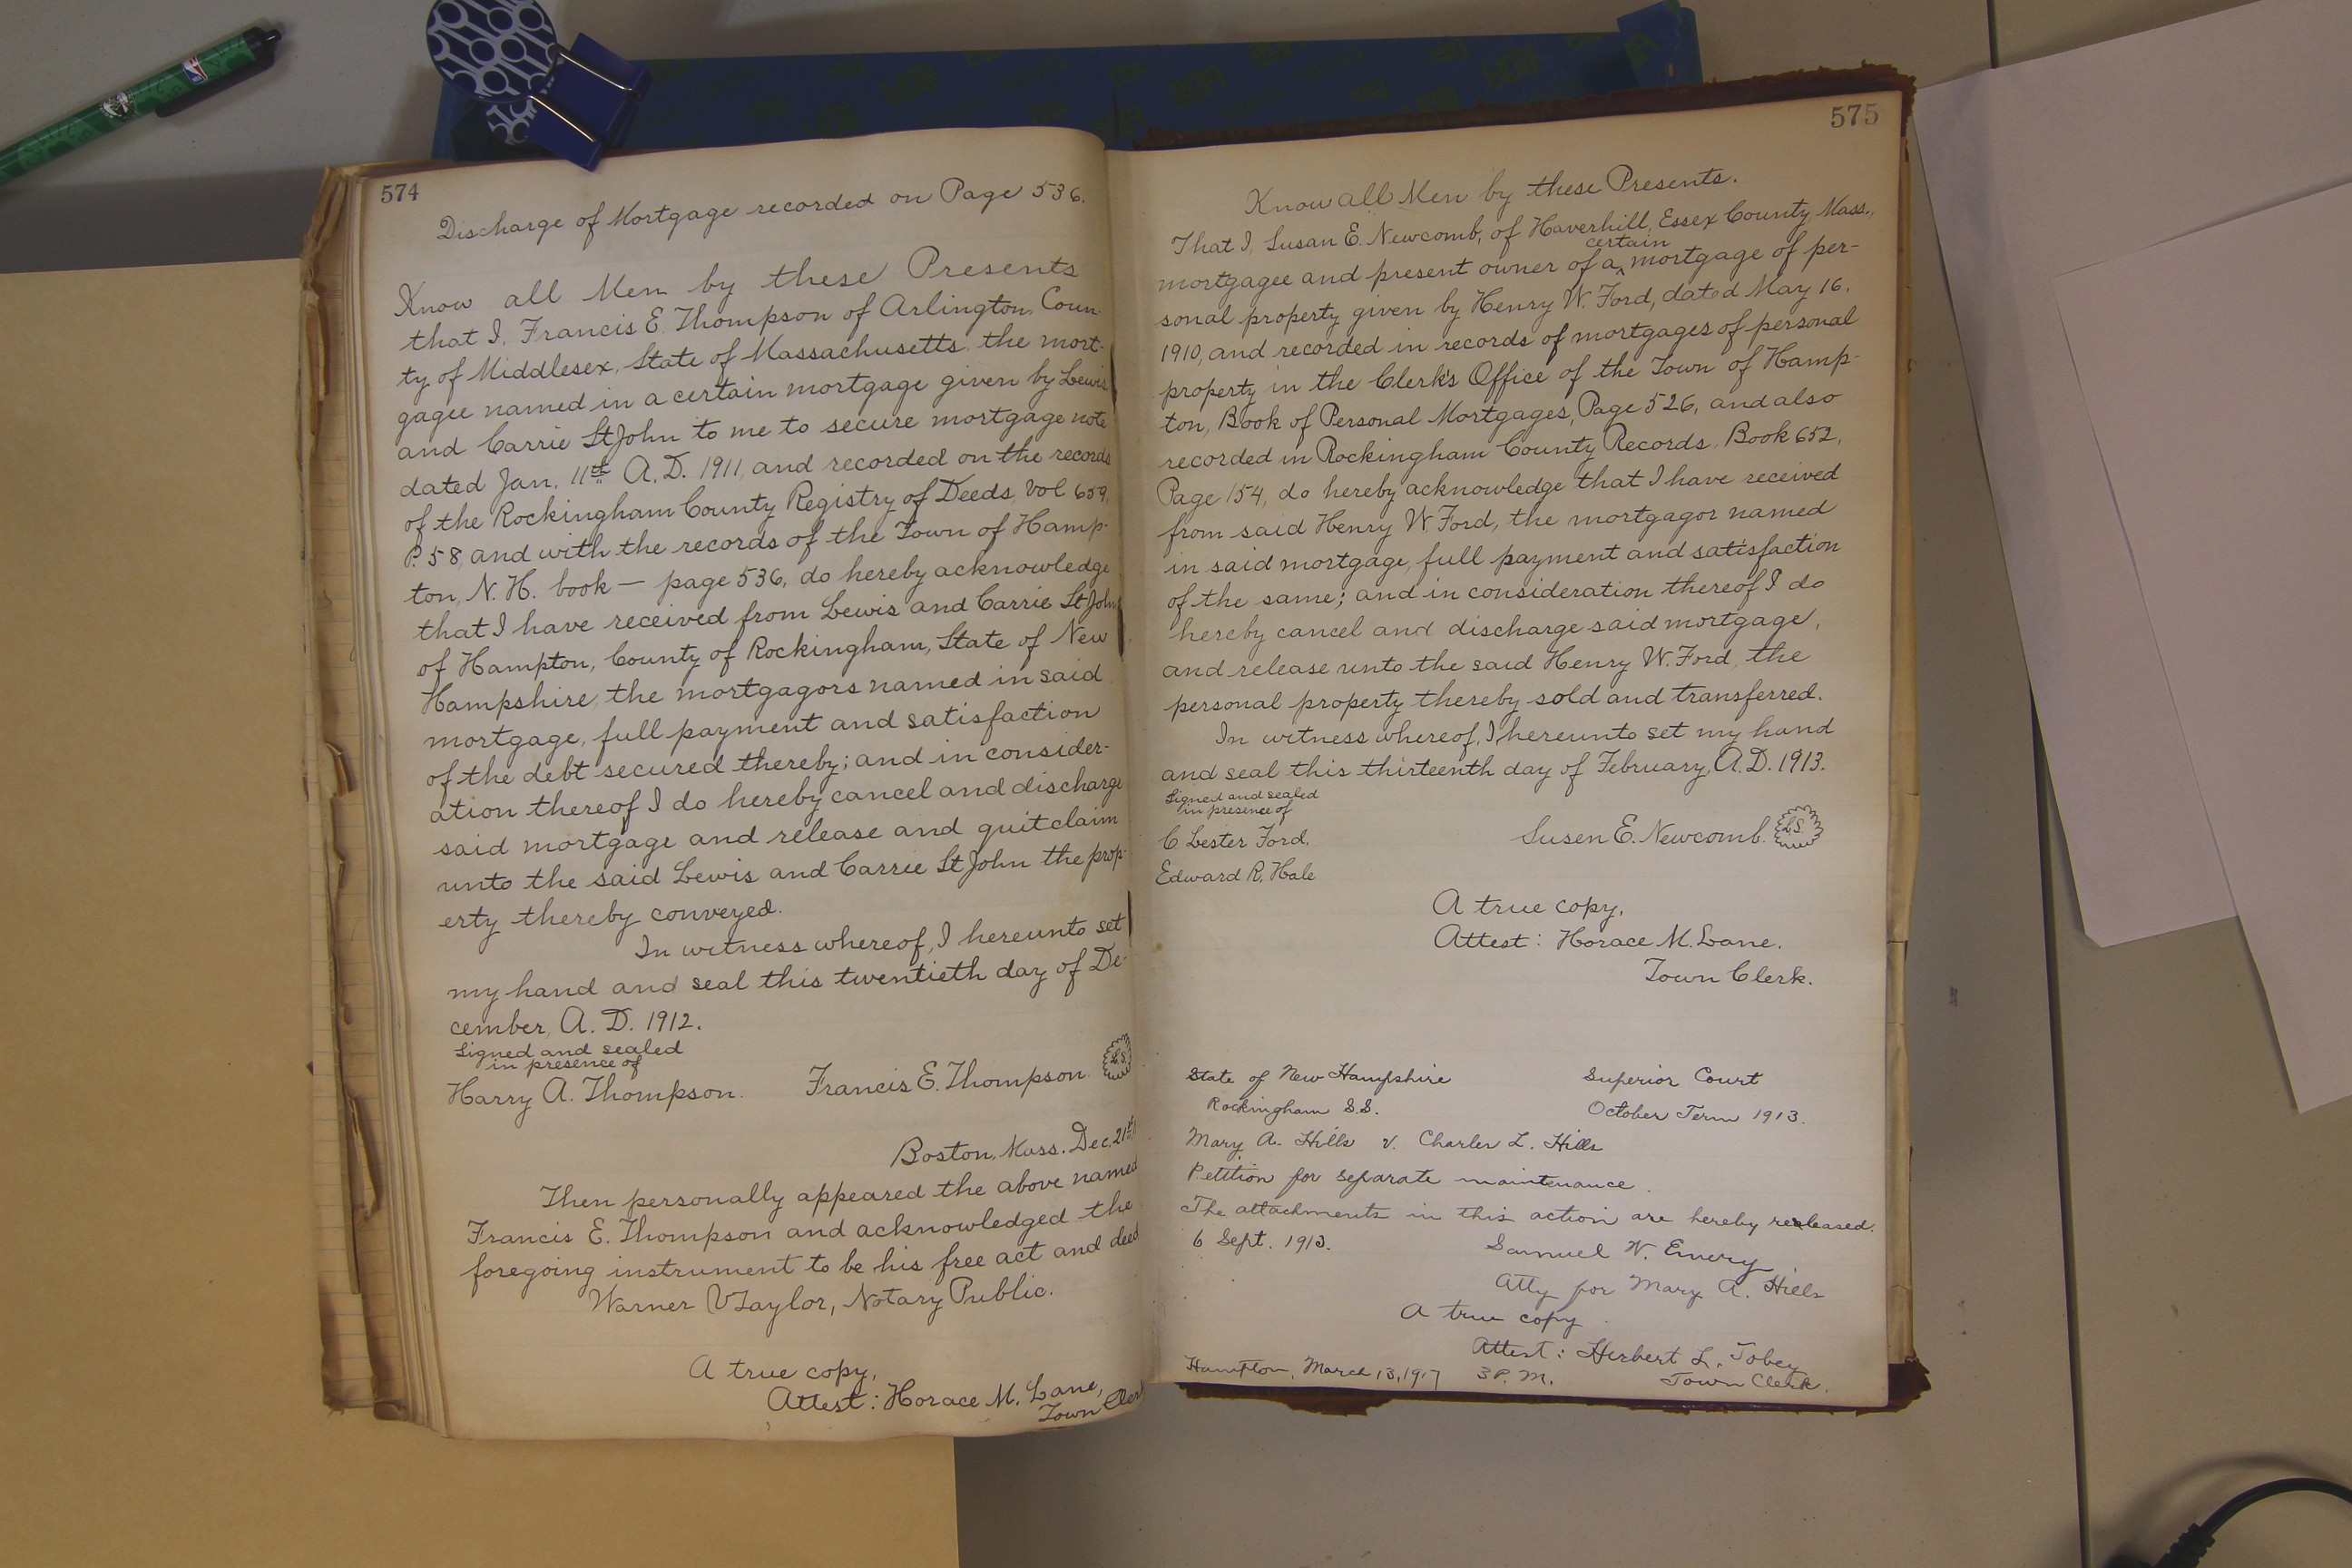 574
Discharge of Mortgage recorded on Page 536.
Know all Men by these Presents
that I, Francis E. Thompson of Arlington, Coun-
ty of Middlesex, State of Massachusetts, the mort-
gagee named in a certain mortgage given by Lewis
and Carrie St John to me to secure mortgage note
dated Jan. 11th A.D. 1911, and recorded on the records
of the Rockingham County Registry of Deeds, Vol 659,
P. 58, and with the records of the Town of Hamp-
ton, N. H. book — page 536, do hereby acknowledge
that I have received from Lewis and Carrie St John
of Hampton, County of Rockingham, State of New
Hampshire, the mortgagors named in said
mortgage, full payment and satisfaction
of the debt secured thereby; and in consider-
ation thereof I do hereby cancel and discharge
said mortgage and release and quitclaim
unto the said Lewis and Carrie St John the prop-
erty thereby conveyed.
In witness whereof, I hereunto set
my hand and seal this twentieth day of De-
cember, A. D. 1912.
Signed and sealed
in presence of
Harry A. Thompson. Francis E. Thompson. L.S.
Boston, Mass. Dec. 21st
Then personally appeared the above named
Francis E. Thompson and acknowledged the
foregoing instrument to be his free act and deed
Warner V Taylor, Notary Public.
A true copy,
Attest: Horace M. Lane,
Town Clerk
575
Know all Men by these Presents.
That I, Susan E. Newcomb, of Haverhill, Essex County, Mass.,
mortgagee and present owner of a certain mortgage of per-
sonal property given by Henry W. Ford, dated May 16,
1910, and recorded in records of mortgages of personal
property in the Clerk's Office of the Town of Hamp-
ton, Book of Personal Mortgages, Page 526, and also
recorded in Rockingham County Records, Book 652,
Page 154, do hereby acknowledge that I have received
from said Henry W Ford, the mortgagor named
in said mortgage, full payment and satisfaction
of the same; and in consideration thereof I do
hereby cancel and discharge said mortgage,
and release unto the said Henry W. Ford, the
personal property thereby sold and transferred.
In witness whereof, I hereunto set my hand
and seal this thirteenth day of February, A.D. 1913.
Signed and sealed
in presence of
C Lester Ford. Susen E. Newcomb. L.S.
Edward R. Hale
A true copy,
Attest: Horace M. Lane.
Town Clerk.
State of New Hampshire Superior Court
Rockingham S.S. October Term 1913.
Mary A. Hills v. Charles L. Hills
Petition for separate maintenance.
The attachments in this action are hereby realeased.
6 Sept. 1913. Samuel W. Emery
Atty for Mary A. Hills
A true copy
Attest: Herbert L. Tobey
Hampton, March 13, 1917 3 P. M. Town Clerk.